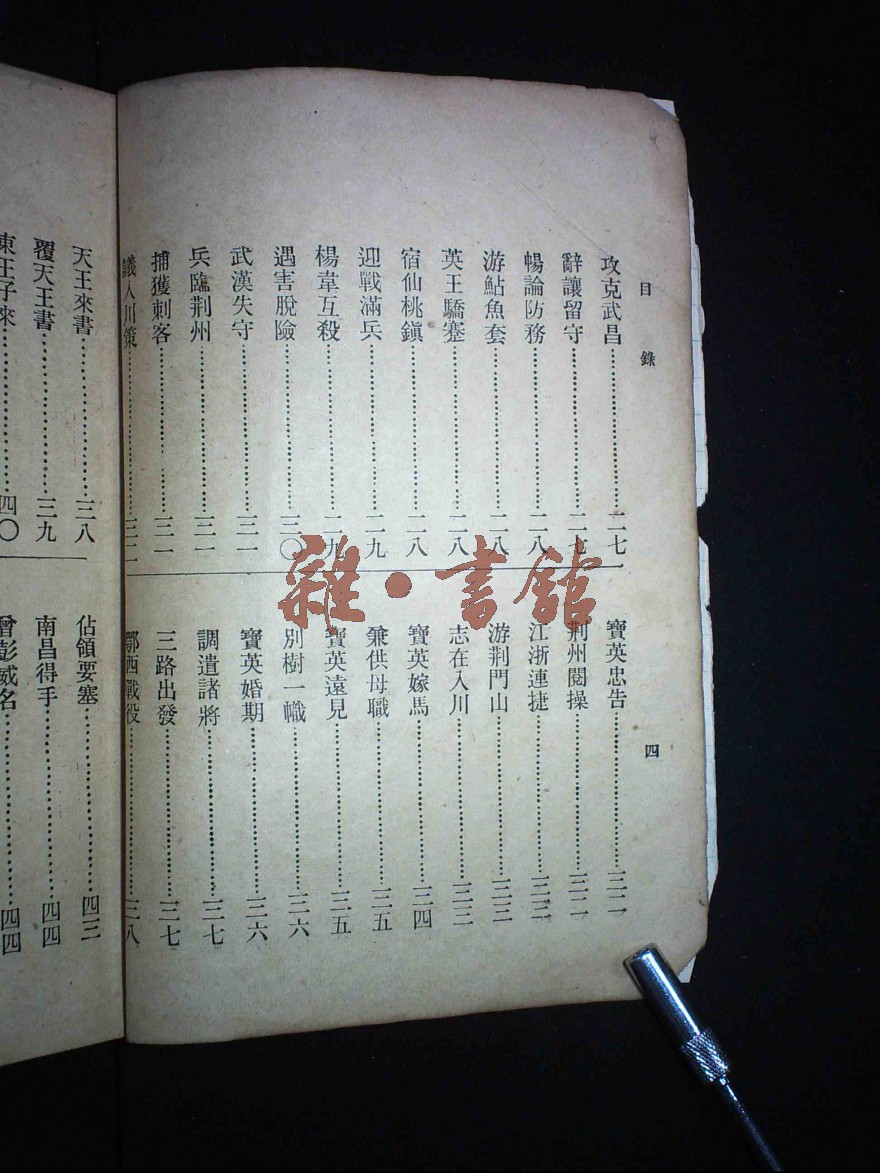 目錄
四
攻克武昌…………二七
辭讓留守…………二七
暢論防務…………二八
游鮎魚套…………二八
英王驕蹇…………二八
宿仙桃鎭…………二八
迎戰滿兵…………二九
楊韋互殺…………二九
遇害脫險…………三〇
武漢失守…………三一
兵臨荆州…………三一
捕獲刺客…………三一
議入川策…………三二
寶英忠告…………三二
荆州閱操…………三二
江浙連捷…………三三
游荆門山…………三三
志在入川…………三三
寶英嫁馬…………三四
兼供母職…………三五
寶英遠見…………三五
別樹一幟…………三六
寶英婚期…………三六
調遣諸將…………三七
三路出發…………三七
鄂西戰役…………三八
天王來書…………三八
覆天王書…………三九
東王子來…………四〇
佔領要塞…………四三
南昌得手…………四四
曾彭威名…………四四
雜·書館